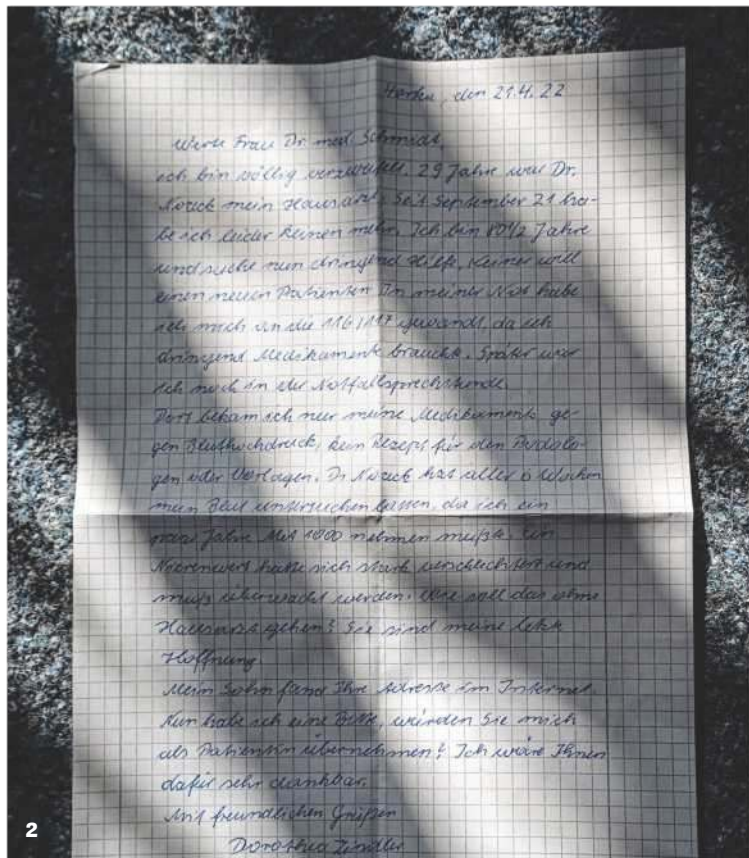 Horka, den 21.4.22
Werte Frau Dr. med. Schmidt,
ich bin völlig verzweifelt. 29 Jahre war Dr.
Noack mein Hausarzt. Seit September 21 ha-
be ich leider keinen mehr. Ich bin 80 1/2 Jahre
und suche nun dringend Hilfe. Keiner will
einen neuen Patienten. In meiner Not habe
ich mich an die 116/117 gewandt, da ich
dringend Medikamente brauchte. Später war
ich noch in der Notfallsprechstunde.
Dort bekam ich nur meine Medikamente ge-
gen Bluthochdruck, kein Rezept für den Podolo-
gen oder Vorlagen. Dr. Noack hat aller 6 Wochen
mein Blut untersuchen lassen, da ich ein
paar Jahre 1000 nehmen mußte. Ein
Nierenwert hatte sich stark verschlechtert und
muß überwacht werden. Wie soll das ohne
Hausarzt gehen? Sie sind meine letzte
Hoffnung.
Mein Sohn fand Ihre Adresse im Internet.
Nun habe ich eine Bitte, würden Sie mich
als Patientin übernehmen? Ich wäre Ihnen
dafür sehr dankbar.
Mit freundlichen Grüßen
Dorothea Zindler
2